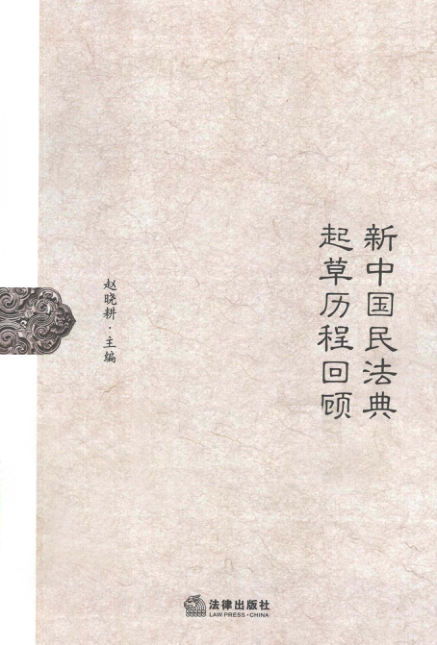 新中国民法典
起草历程回顾
赵晓耕·主编
法律出版社
LAW PRESS·CHINA